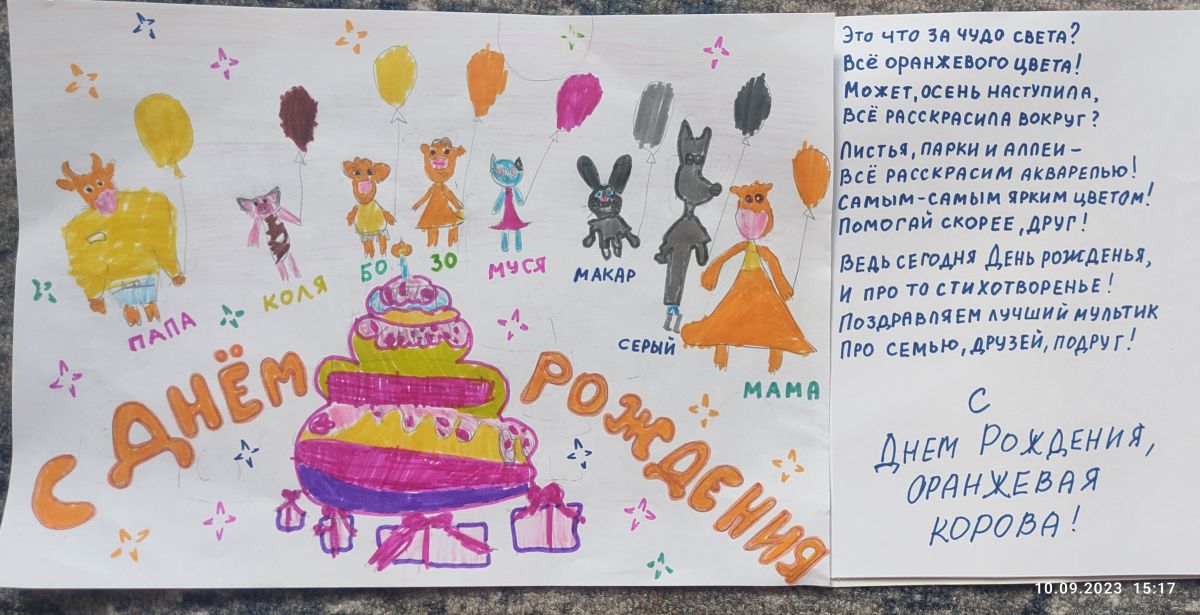 ПАПА
КОЛЯ
БО
ЗО
МУСЯ
МАКАР
СЕРЫЙ
МАМА
С ДНЁМ РОЖДЕНИЯ
Это что за чудо света?
Всё оранжевого цвета!
Может, осень наступила,
Всё расскрасила вокруг?
Листья, парки и аллеи –
Всё расскрасим акварелью!
Самым-самым ярким цветом!
Помогай скорее, друг!
Ведь сегодня День рожденья,
И про то стихотворенье!
Поздравляем лучший мультик
Про семью, друзей, подруг!
С
Днем Рождения,
оранжевая
корова!
10.09.2023 15:17